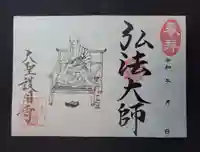 奉拝
令和 年 月 日
弘法大師
天聖護国寺